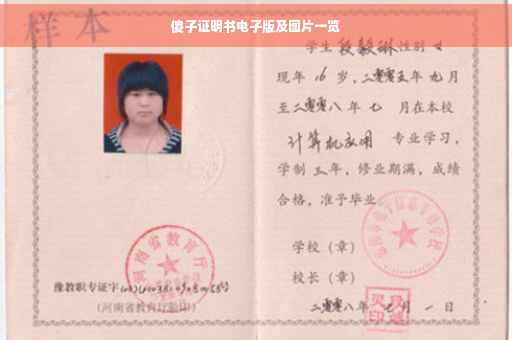 傻子证明书电子版及图片一览
样本
学生段毅琳性别女
现年16岁，二零零五年九月
至二零零八年七 月在本校
计算机应用 专业学习，
学制三年，修业期满，成绩
合格，准予毕业。
学校（章）
校长（章）
二零零八年七月一日
河南省教育厅
豫教职专证字
（河南省教育厅验印）